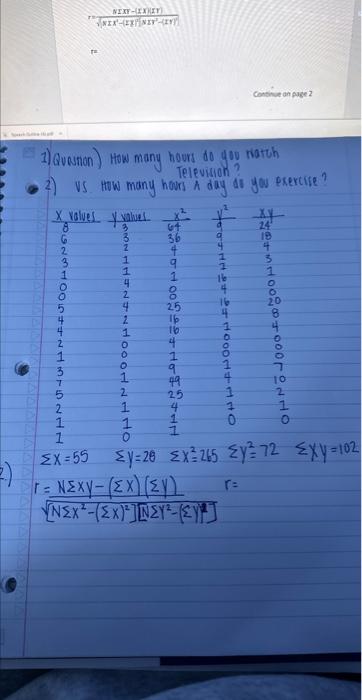 r= NΣXY-(ΣX)(ΣY)
√[NΣX²-(ΣX)²][NΣY²-(ΣY)²]
r=
Continue on page 2
1) Question) How many hours do you watch
Television?
2) VS How many hours A day do you exercise?
X values Y values x² y² xy
8 3 64 9 24
6 3 36 9 18
2 2 4 4 4
3 1 9 1 3
1 1 1 1 1
0 4 0 16 0
0 2 0 4 0
5 4 25 16 20
4 2 16 4 8
4 1 16 1 4
2 0 4 0 0
1 0 1 0 0
3 0 9 0 0
7 1 49 1 7
5 2 25 4 10
2 1 4 1 2
1 1 1 1 1
1 0 1 0 0
Σx=55 Σy=28 Σx²=265 Σy²=72 Σxy=102
2.) r= NΣxy-(Σx)(Σy) r=
√[NΣx²-(Σx)²][NΣy²-(Σy)²]